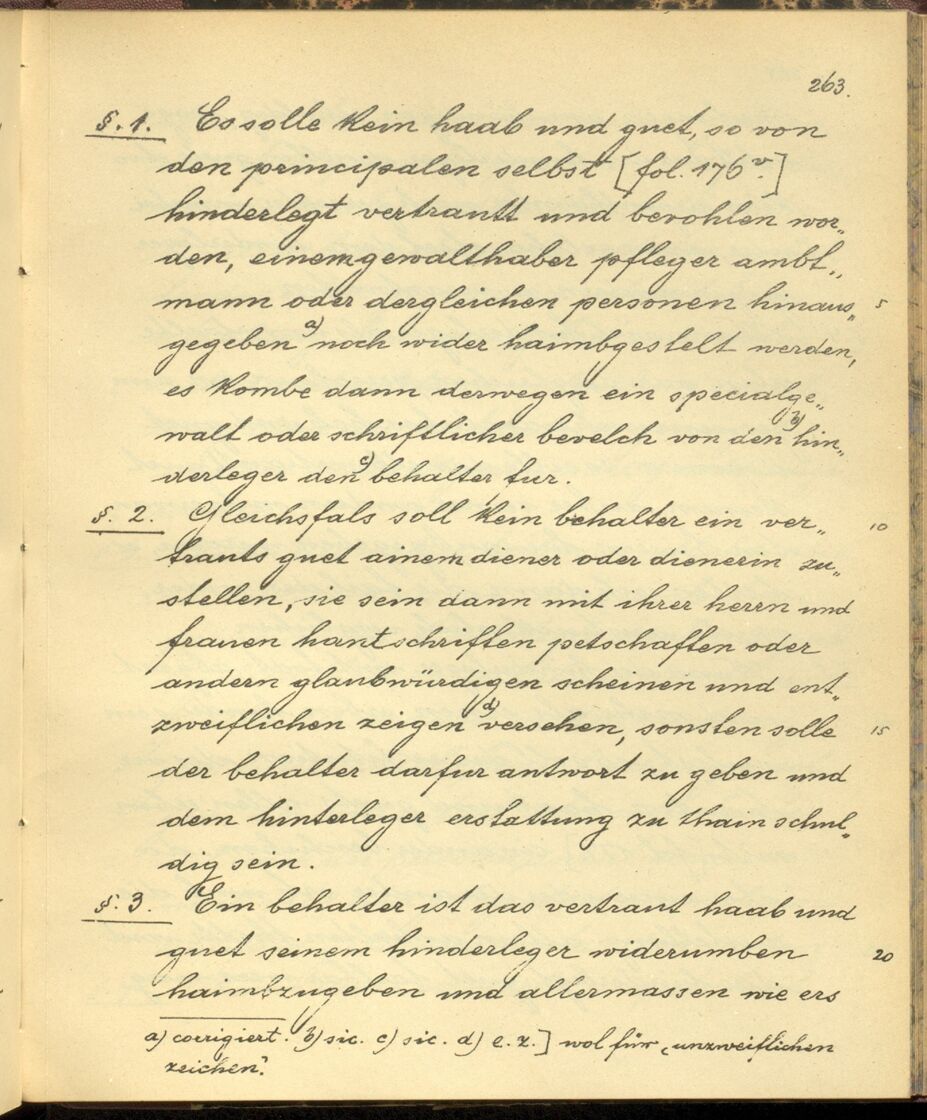 263.
§. 1. Es solle kein haab und guet, so von
den principalen selbst [fol. 176v.]
hinderlegt vertrautt und bevohlen wor„
den, einem gewalthaber pfleger ambt„
mann oder dergleichen personen hinaus„ 5
gegeben a) noch wider haimbgestelt werden,
es kombe dann derwegen ein specialge„
walt oder schriftlicher bevelch von den b) hin„
derleger den c) behalter fur.
§. 2. Gleichsfals soll kein behalter ein ver„ 10
trauts guet ainem diener oder dienerin zu„
stellen, sie sein dann mit ihrer herrn und
frauen hantschriften petschaften oder
andern glaubwürdigen scheinen und ent„
zweiflichen zeigen d) versehen, sonsten solle 15
der behalter darfur antwort zu geben und
dem hinterleger erstattung zu thain schul„
dig sein.
§. 3. Ein behalter ist das vertraut haab und
guet seinem hinderleger widerumben 20
haimbzugeben und allermassen wie ers
a) corrigiert. b) sic. c) sic. d) e. z.] wol für „unzweiflichen
zeichen".